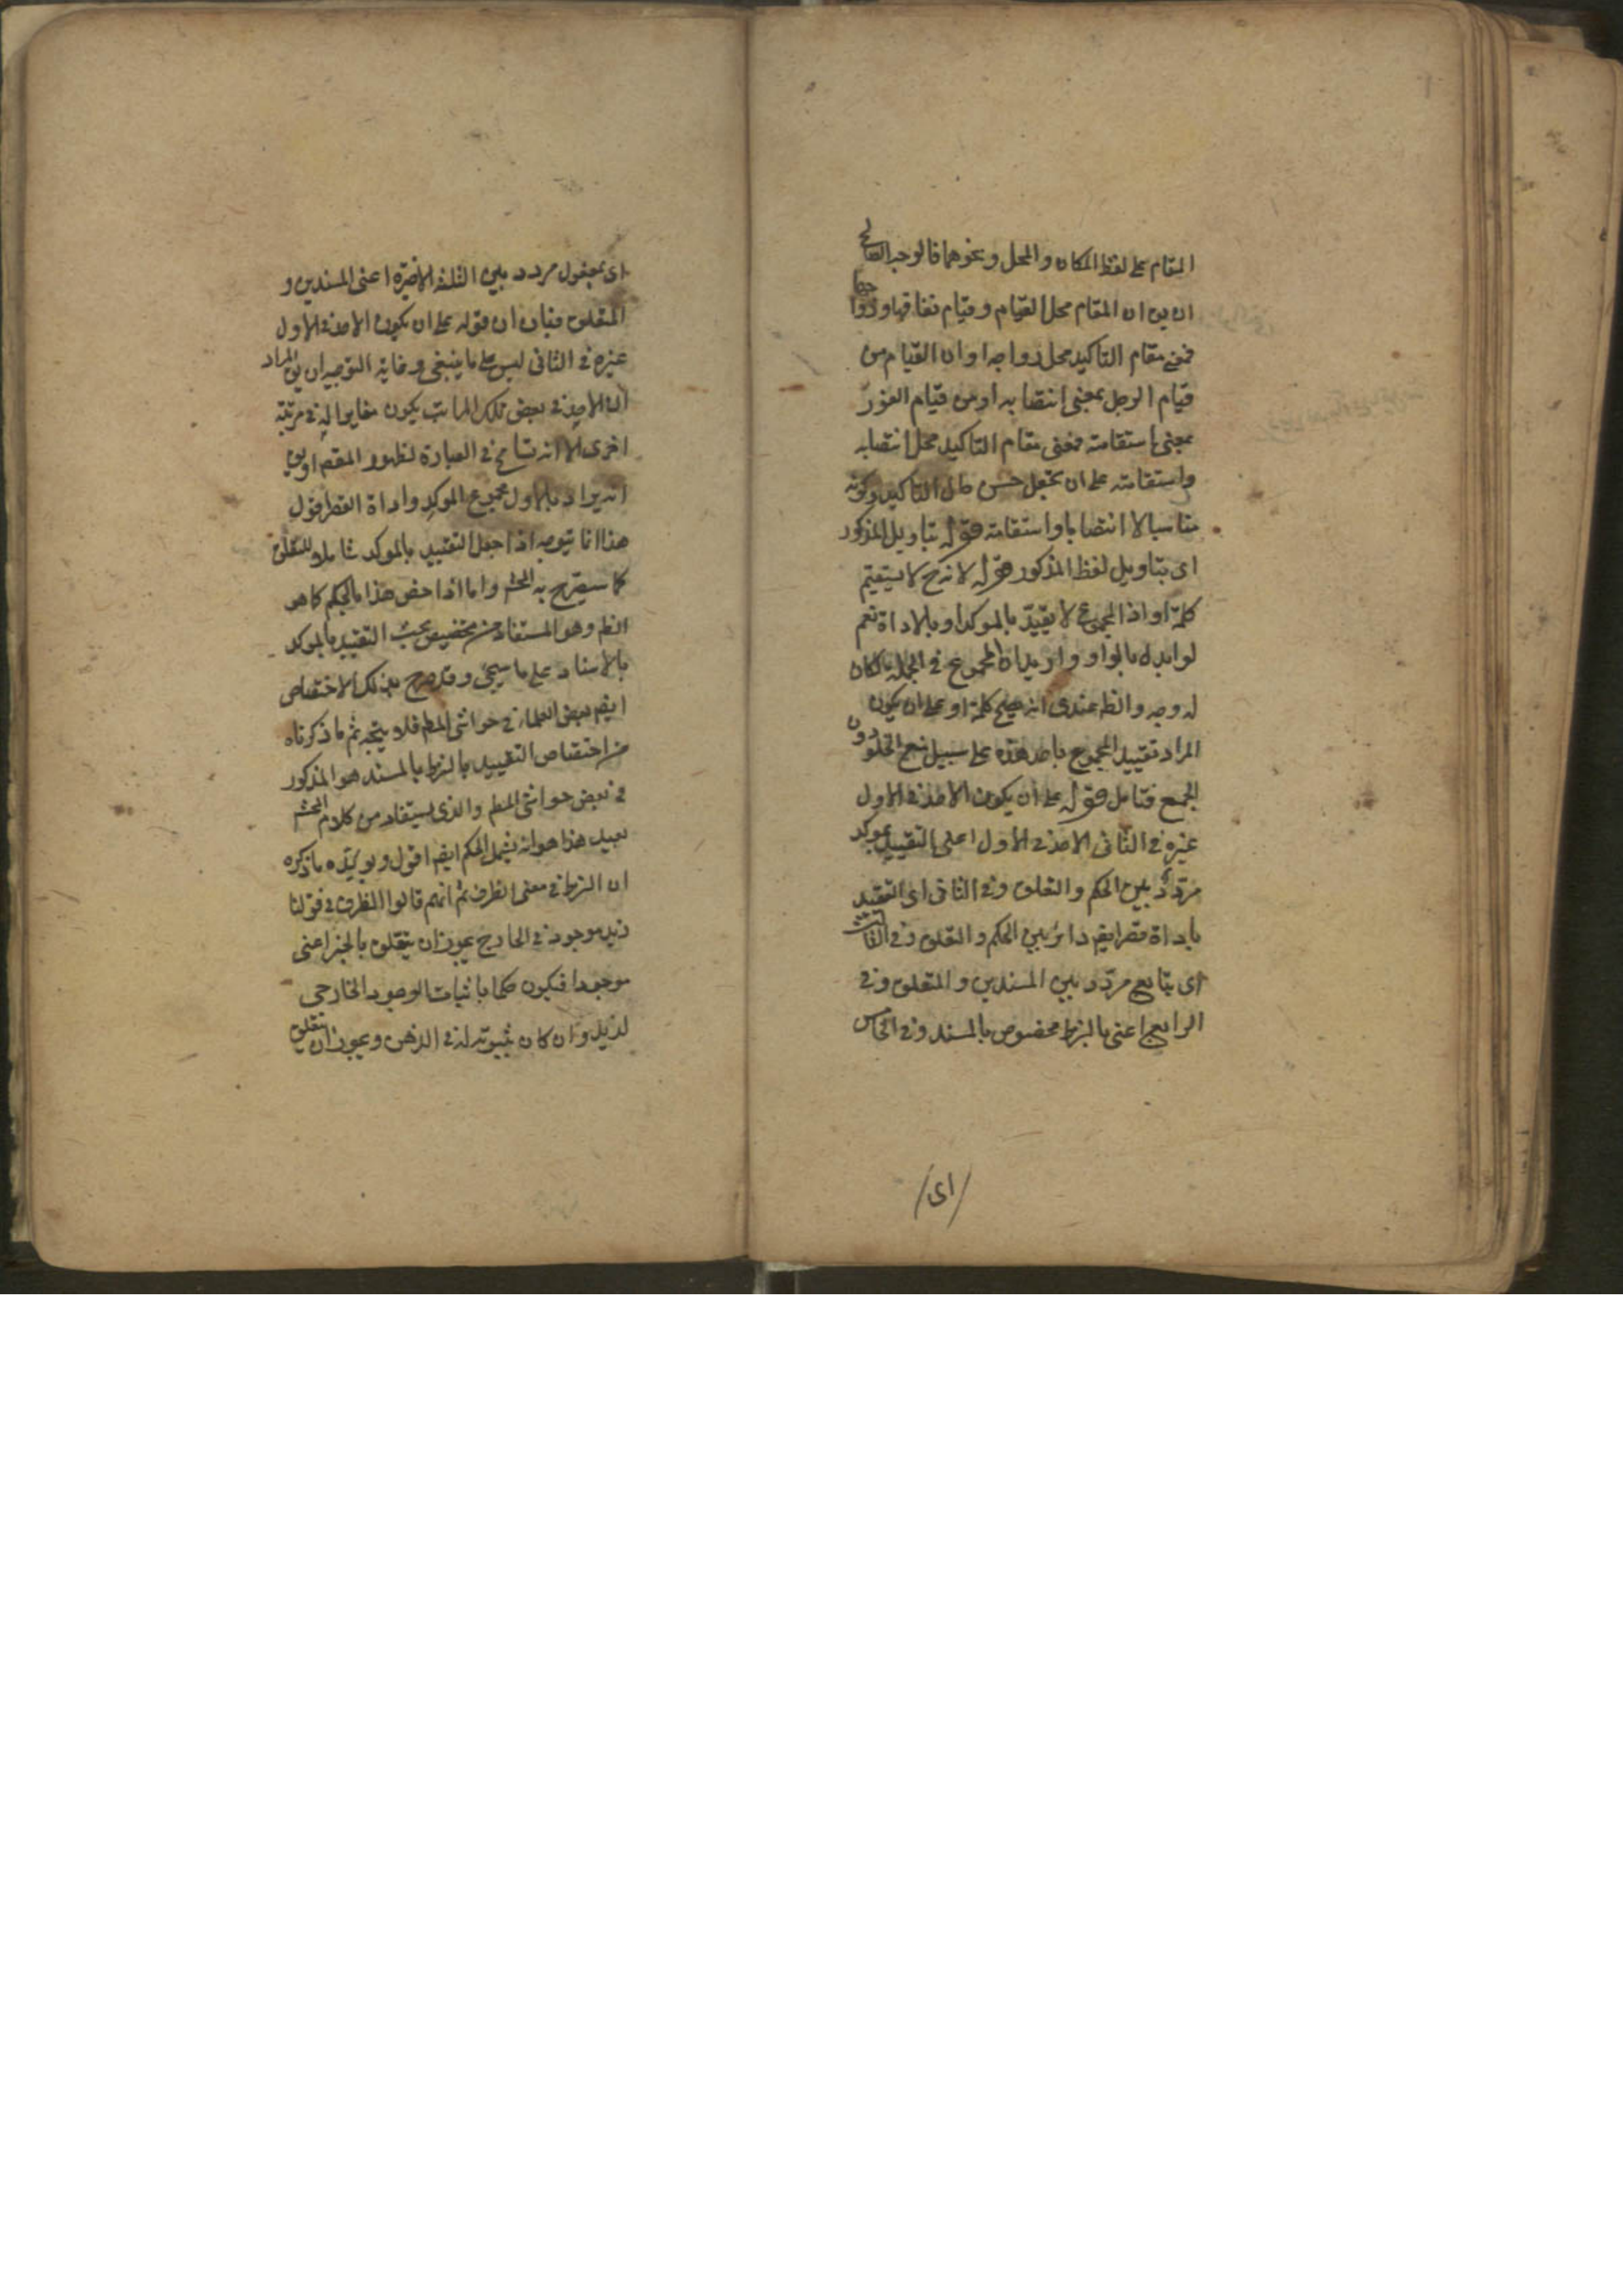 المقام على لفظ المكان والمحل ونحوهما فالوجه
ان يق ان المقام محل القيام وقيام نفاقها ورواجها
فمعنى مقام التاكيد محل رواجه او ان القيام من
قيام الرجل بمعنى انتصابه او من قيام العود
بمعنى استقامته فمعنى مقام التاكيد محل انتصابه
واستقامته على ان يجعل حسن حال التاكيد وكونه
مناسبا لا انتصابا واستقامة قوله بتاويل المذكور
اى بتاويل لفظ المذكور قوله لانه ح لا يستقيم
كلمة او اذ المجموع لا يقيد بالموكد او بالاداة نعم
لو ابدل بالواو واريد ان المجموع فى الجملة لكان
له وجه والظ عندى انه يصح كلمة او على ان يكون
المراد تقييد المجموع باحد هذه على سبيل منع الخلو دون
الجمع فتامل قوله على ان يكون الاحد فى الاول
غيره فى الثانى الاحد فى الاول اعنى التقييد بموكد
مردد بين الحكم والتعلق وفى الثانى اى التقييد
باداة قصر ايضا دائر بين الحكم والتعلق وفى الثالث
اى بتابع مردد بين المسندين والمتعلق وفى
الرابع اعنى بالشرط مخصوص بالمسند وفى الخامس
اى
اى بمفعول مردد بين الثلثة الاخيرة اعنى المسندين و
المتعلق فبان ان قوله على ان يكون الاحد فى الاول
غيره فى الثانى ليس على ما ينبغى وغاية التوجيه ان يق المراد
ان الاحد فى بعض تلك المراتب يكون مغايرا له فى مرتبة
اخرى الا انه تسامح فى العبارة لظهور المقص او يق
انه يراد بالاول مجموع الموكد واداة القصر اقول
هذا انما يتوجه اذا جعل التقييد بالموكد شاملا للتعلق
كما سيصرح به المحشى واما اذا خص هذا بالحكم كما هو
الظ وهو المستفاد من تخصيص بحث التقييد بالموكد
بالاسناد على ما سيجئ وقد صرح بذلك الاختصاص
ايضا بعض العلماء فى حواشى المطم فلا يتجه ثم ما ذكرناه
من اختصاص التقييد بالشرط بالمسند هو المذكور
فى بعض حواشى المطم والذى يستفاد من كلام المحشى
بعيد هذا هو انه يشمل الحكم ايضا اقول ويويده ما ذكره
ان الشرط فى معنى الظرف ثم انهم قالوا الظرف فى قولنا
زيد موجود فى الخارج يجوز ان يتعلق بالخبر اعنى
موجودا فيكون حكما باثبات الوجود الخارجى
لزيد وان كان ثبوته له فى الذهن ويجوز ان يتعلق